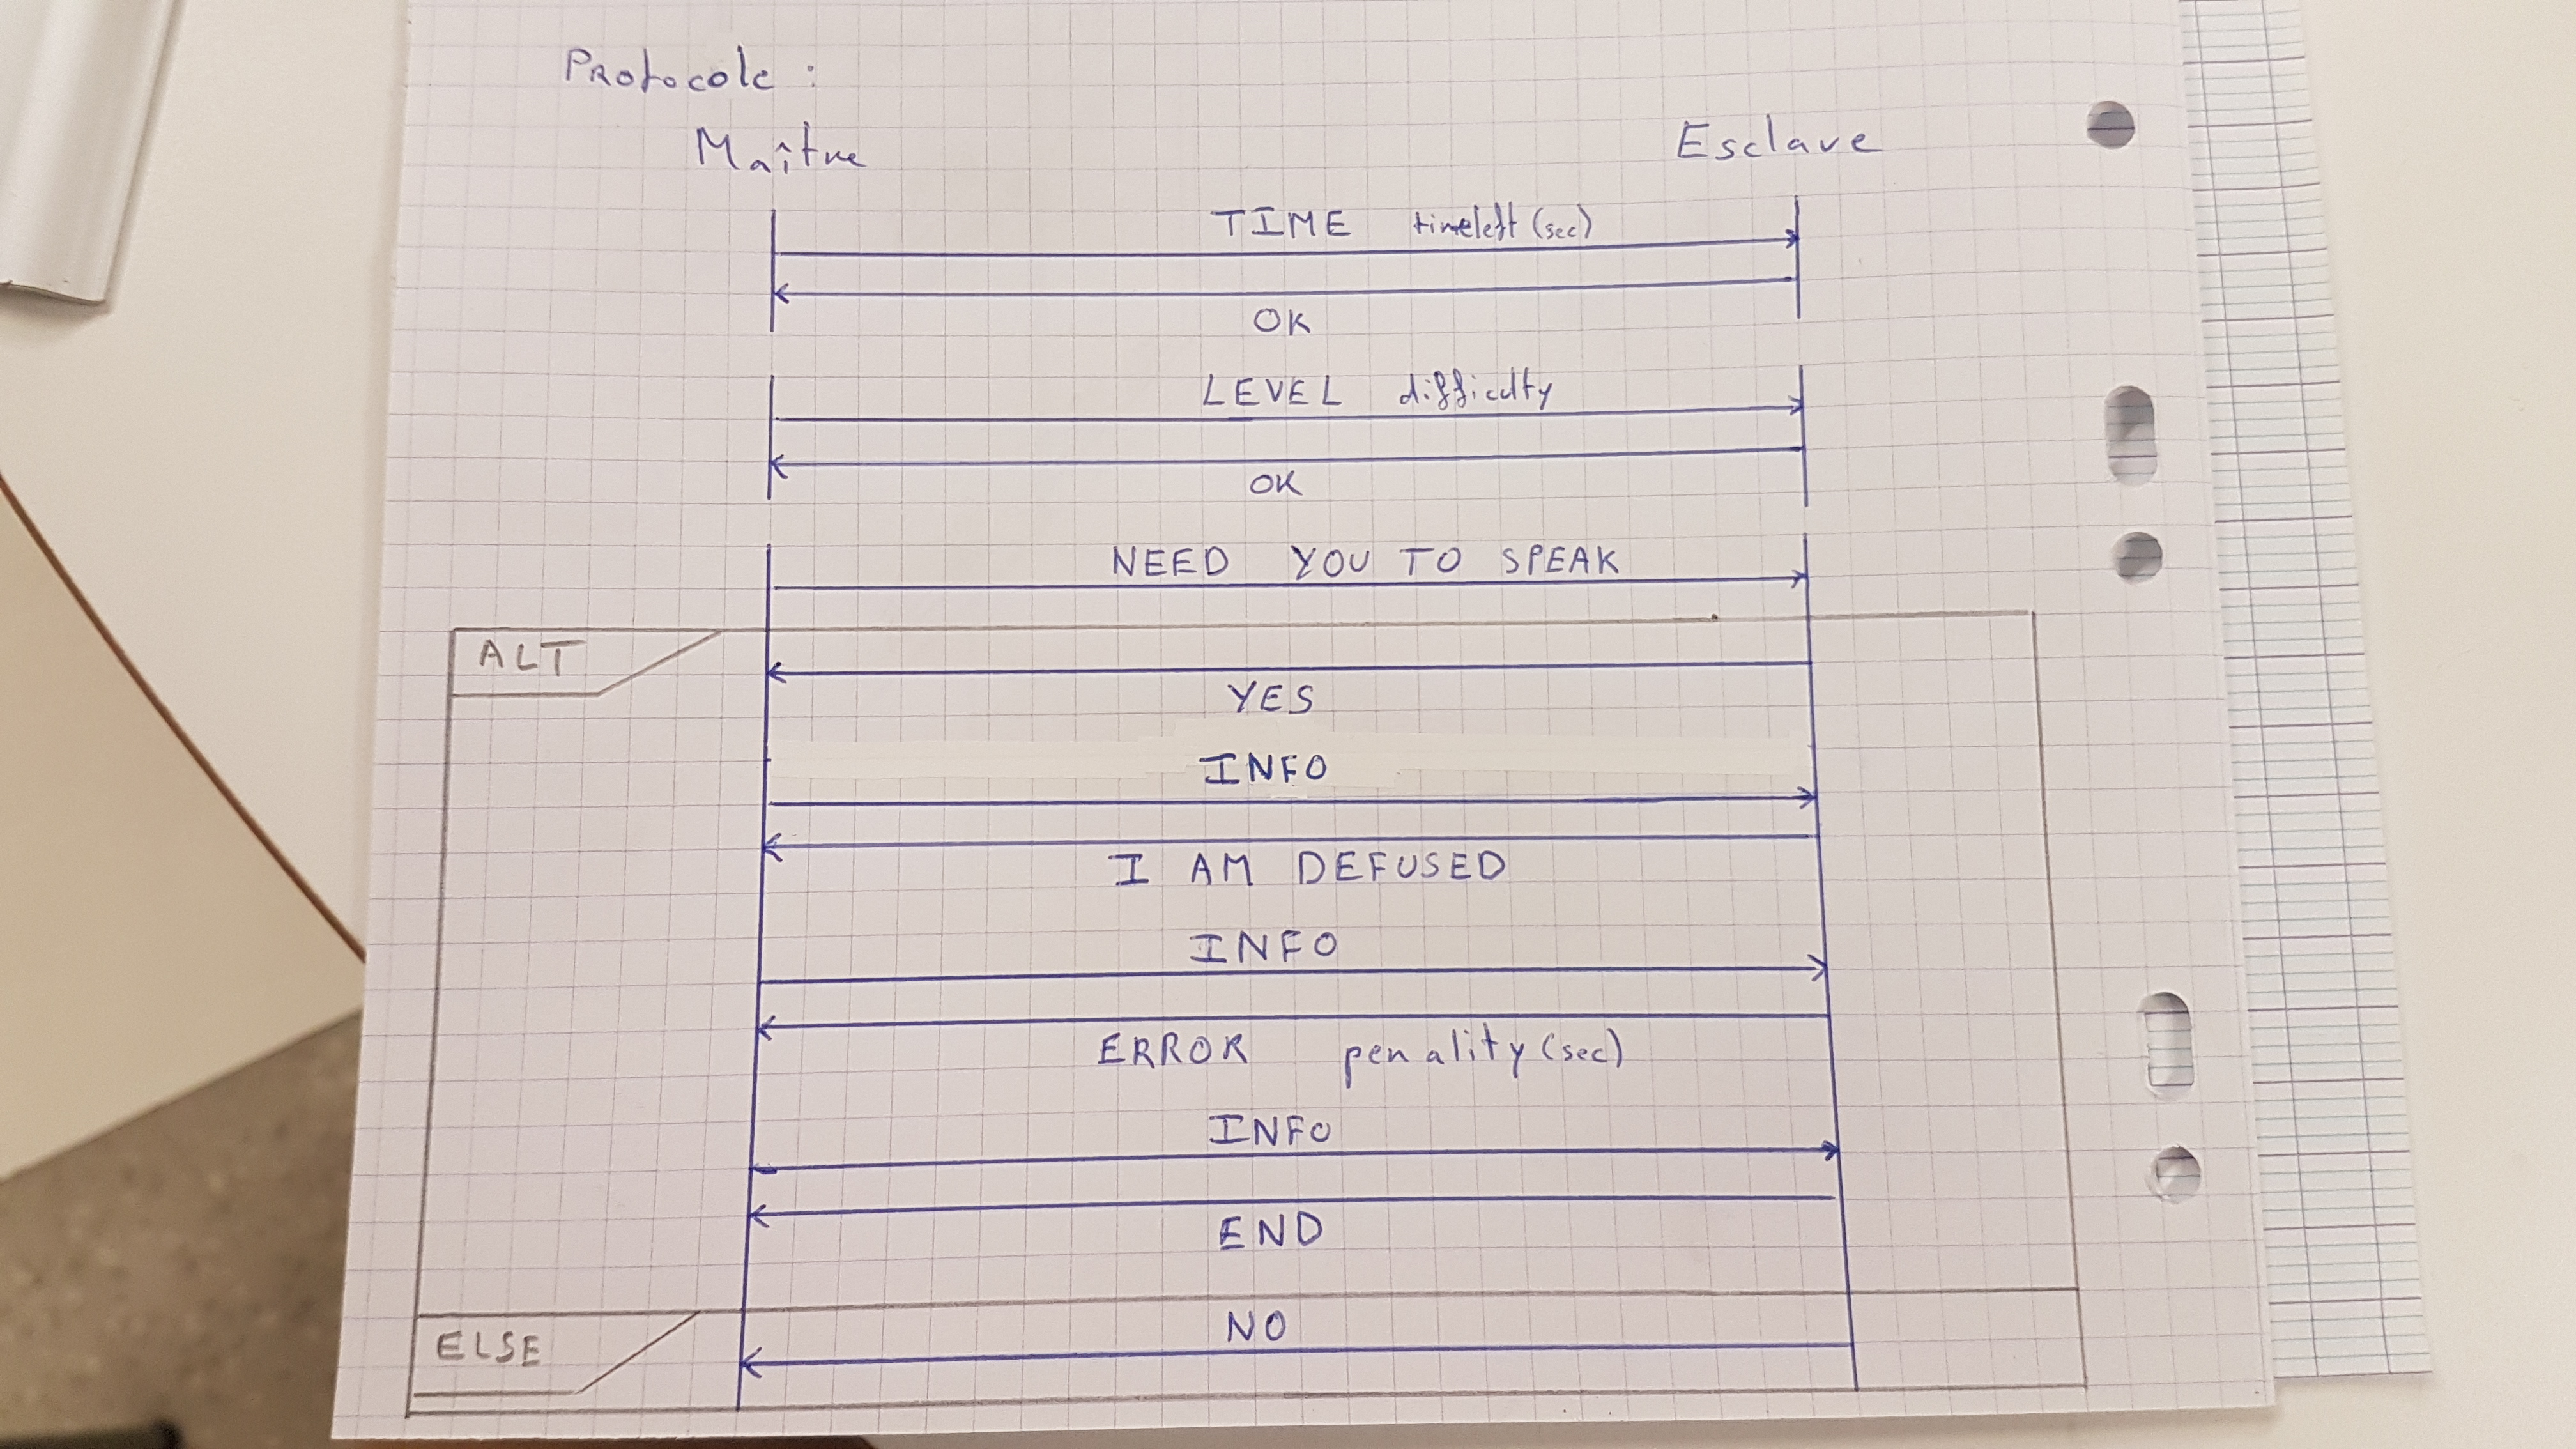 Protocole :
Maître Esclave
TIME timeleft (sec)
OK
LEVEL difficulty
OK
NEED YOU TO SPEAK
ALT
YES
INFO
I AM DEFUSED
INFO
ERROR penality (sec)
INFO
END
ELSE
NO